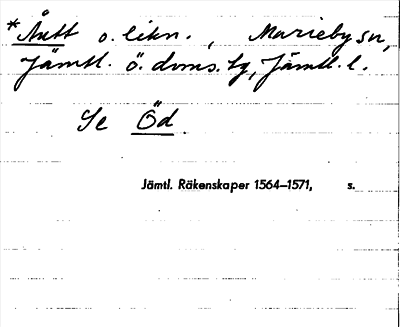 *Åutt o. likn., Marieby sn,
Jämtl. ö. doms. tg, Jämtl. l.
Se Öd.
Jämtl. Räkenskaper 1564–1571, s.